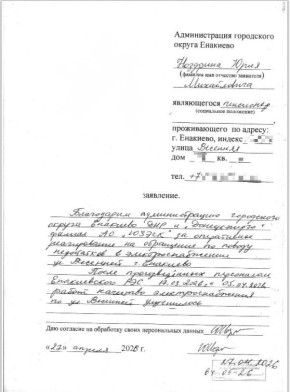 Администрация городского
округа Енакиево
Ноздрина Юрия
(фамилия имя отчество заявителя)
Михайловича
являющегося пенсионер
(социальное положение)
проживающего по адресу:
г. Енакиево, индекс
улица Весенняя
дом кв.
тел. +7
заявление.
Благодарим администрацию городского
округа Енакиево ДНР и
филиал АО за оперативное
реагирование на обращение по поводу
недостатков в электроснабжении
ул Весенней г. Енакиево
После произведённых персоналом
Енакиевского РЭС
работ качество электроснабжения
по ул Весенней улучшилось
Даю согласие на обработку своих персональных данных
«27» апреля 2026 г.
27.04.2026